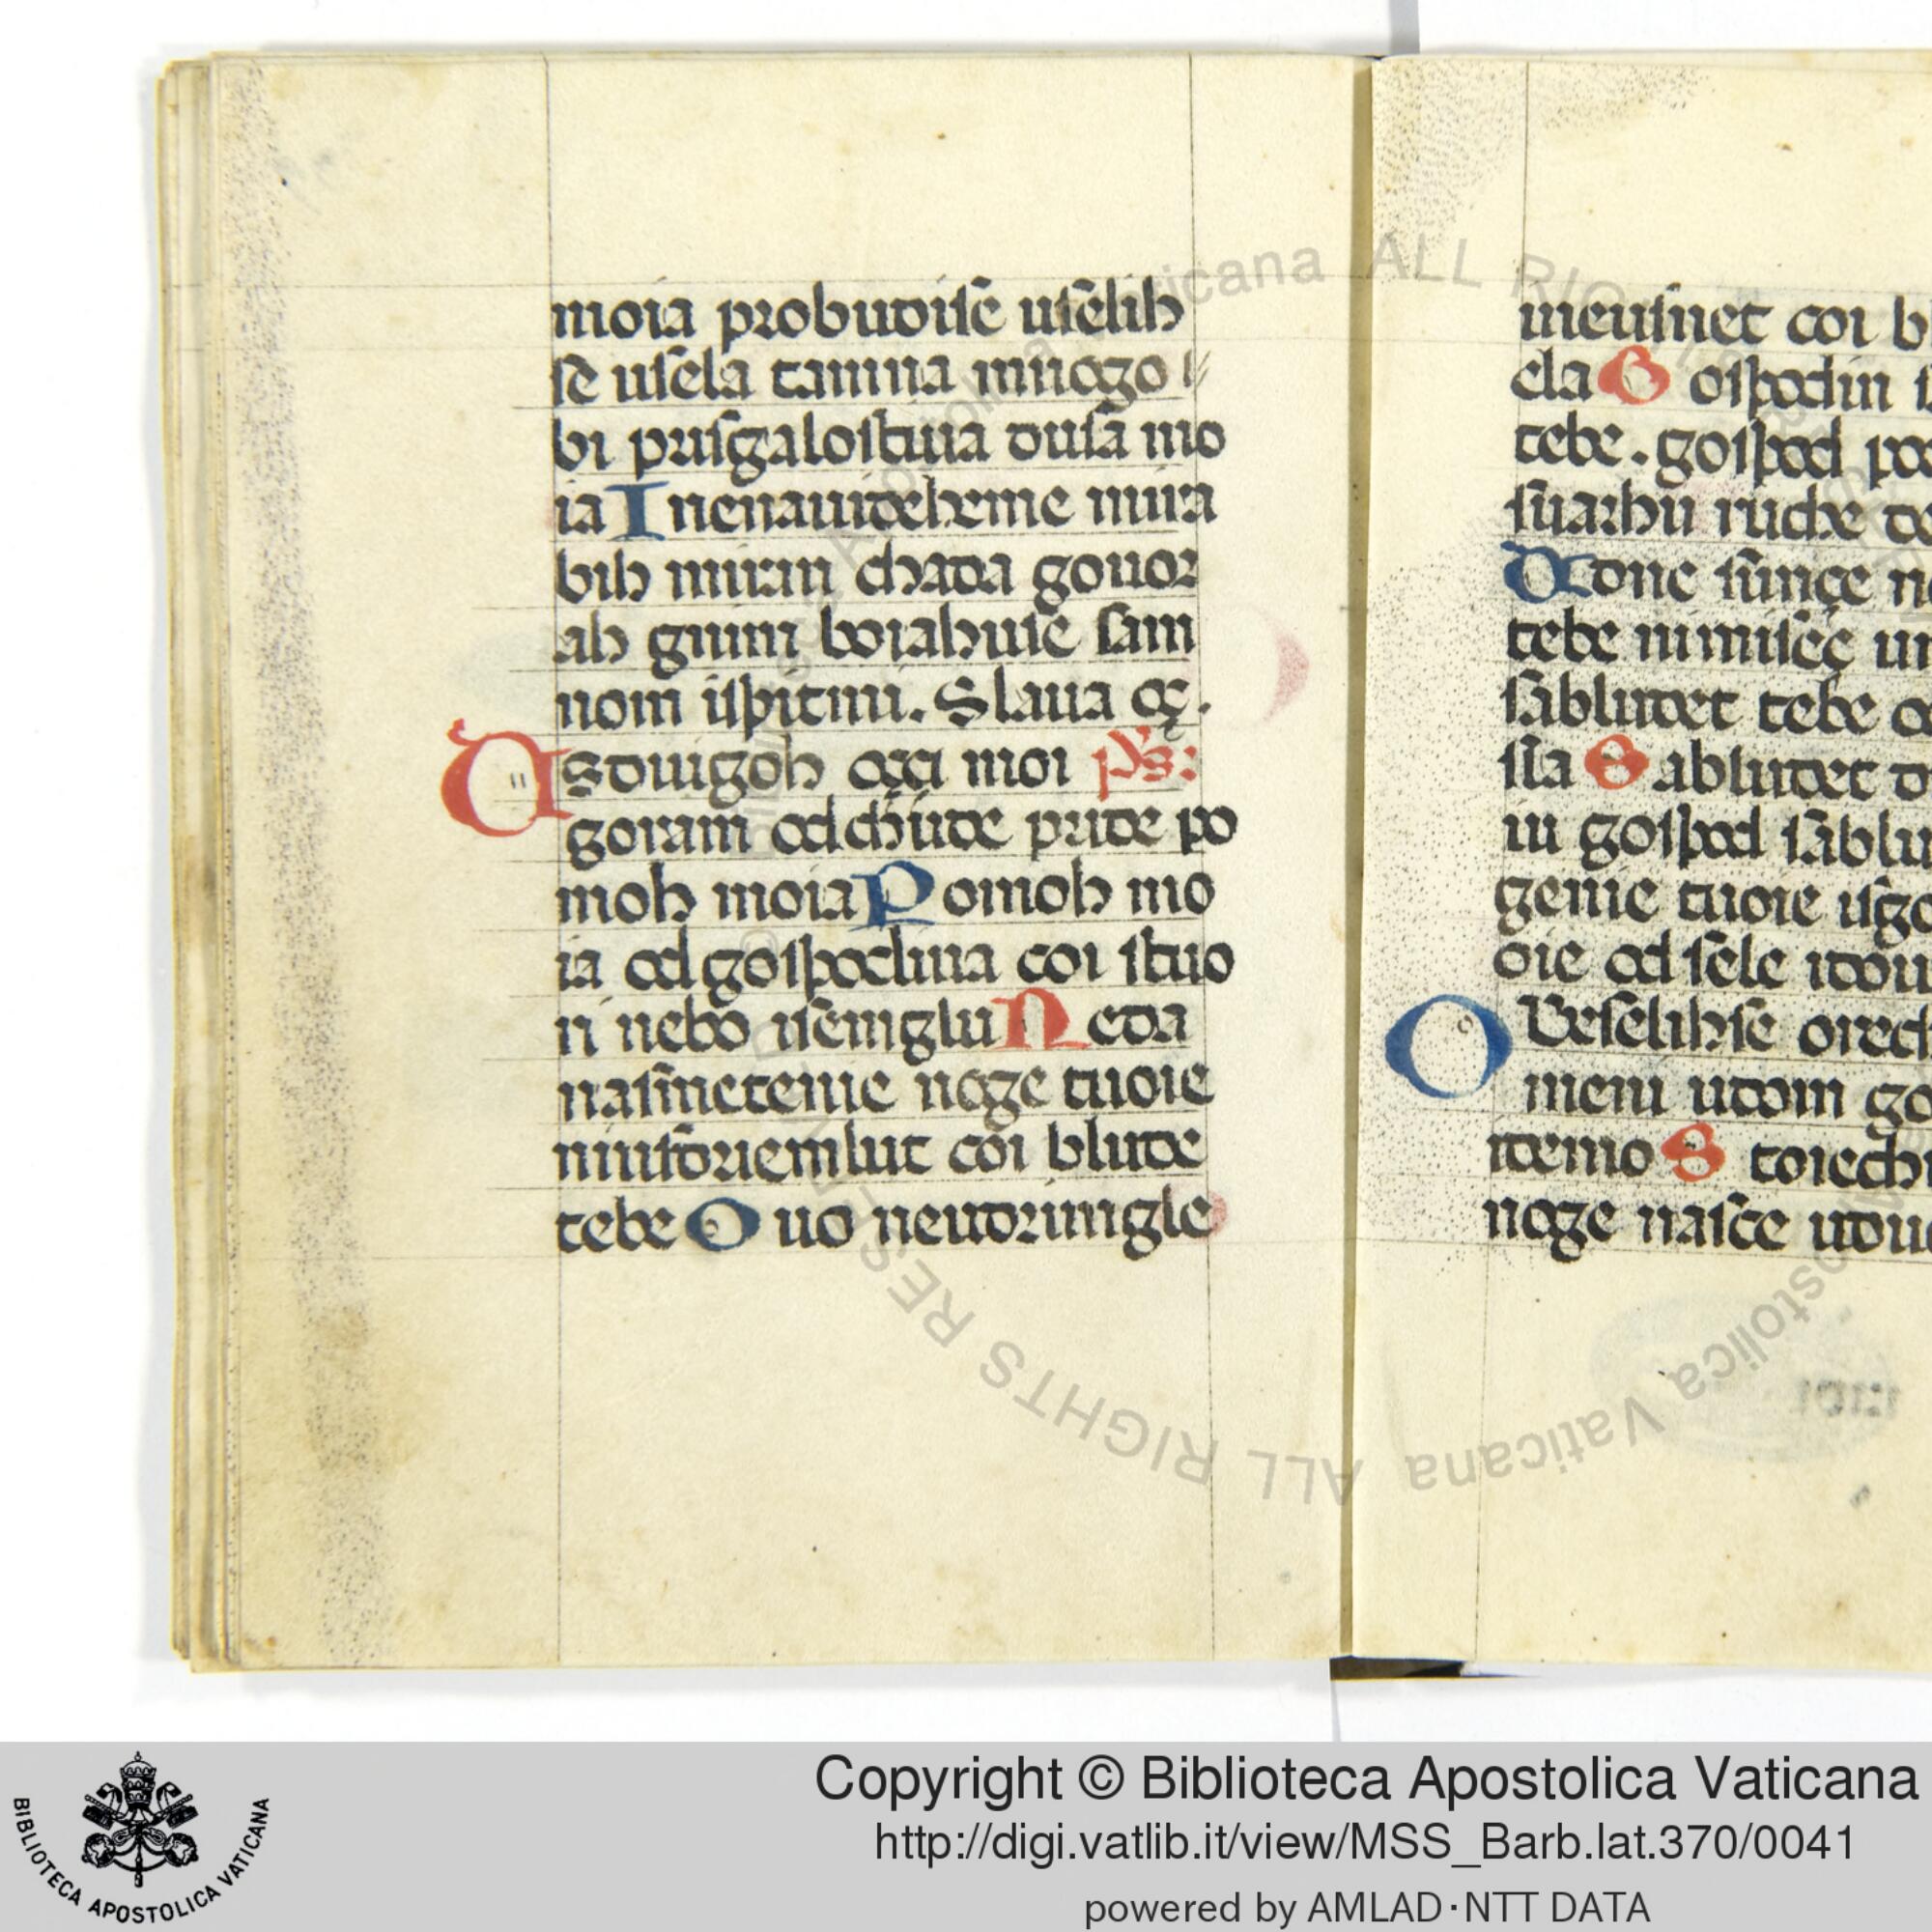 moia probudiſe uſelih
ſe uſela tamna mnogo
bi priſgaloſtiua duſa mo
ia I nenauideheme mira
bih mirin chada gouor
ah gnim boiahuiſe ſam
nom iſpitmi. Slaua oç.
Usduigoh oçi moi ps:
goram odchude pride po
moh moia Pomoh mo
ia od goſpodina coi ſtuo
ri nebo iſemglu Neda
naſmetenie noge tuoie
niuſdriemlut coi blude
tebe Ouo neudrimgle
meuſnet coi b
da Goſpodin ſ
tebe. goſpod po
ſuarhu ruche de
Adone ſunçe n
tebe nimiſeç u
ſabludet tebe o
ſla Sabludet d
iu goſpod ſablu
genie tuoie iſgo
oie od ſele idou
OVeſelihſe orech
meni udom go
idemo Stoiechi
noge naſce udou
Copyright © Biblioteca Apostolica Vaticana
http://digi.vatlib.it/view/MSS_Barb.lat.370/0041
powered by AMLAD·NTT DATA
BIBLIOTECA APOSTOLICA VATICANA